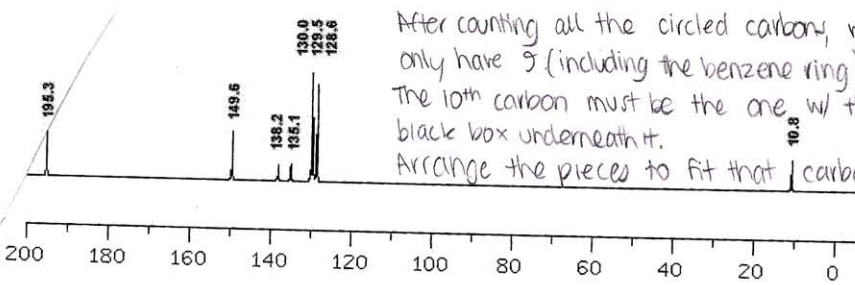 After counting all the circled carbons,
only have 9 (including the benzene ring)
The 10th carbon must be the one w/
black box underneath it.
Arrange the pieces to fit that
195.3
149.6
138.2
135.1
130.0
129.5
128.6
10.8
200 180 160 140 120 100 80 60 40 20 0